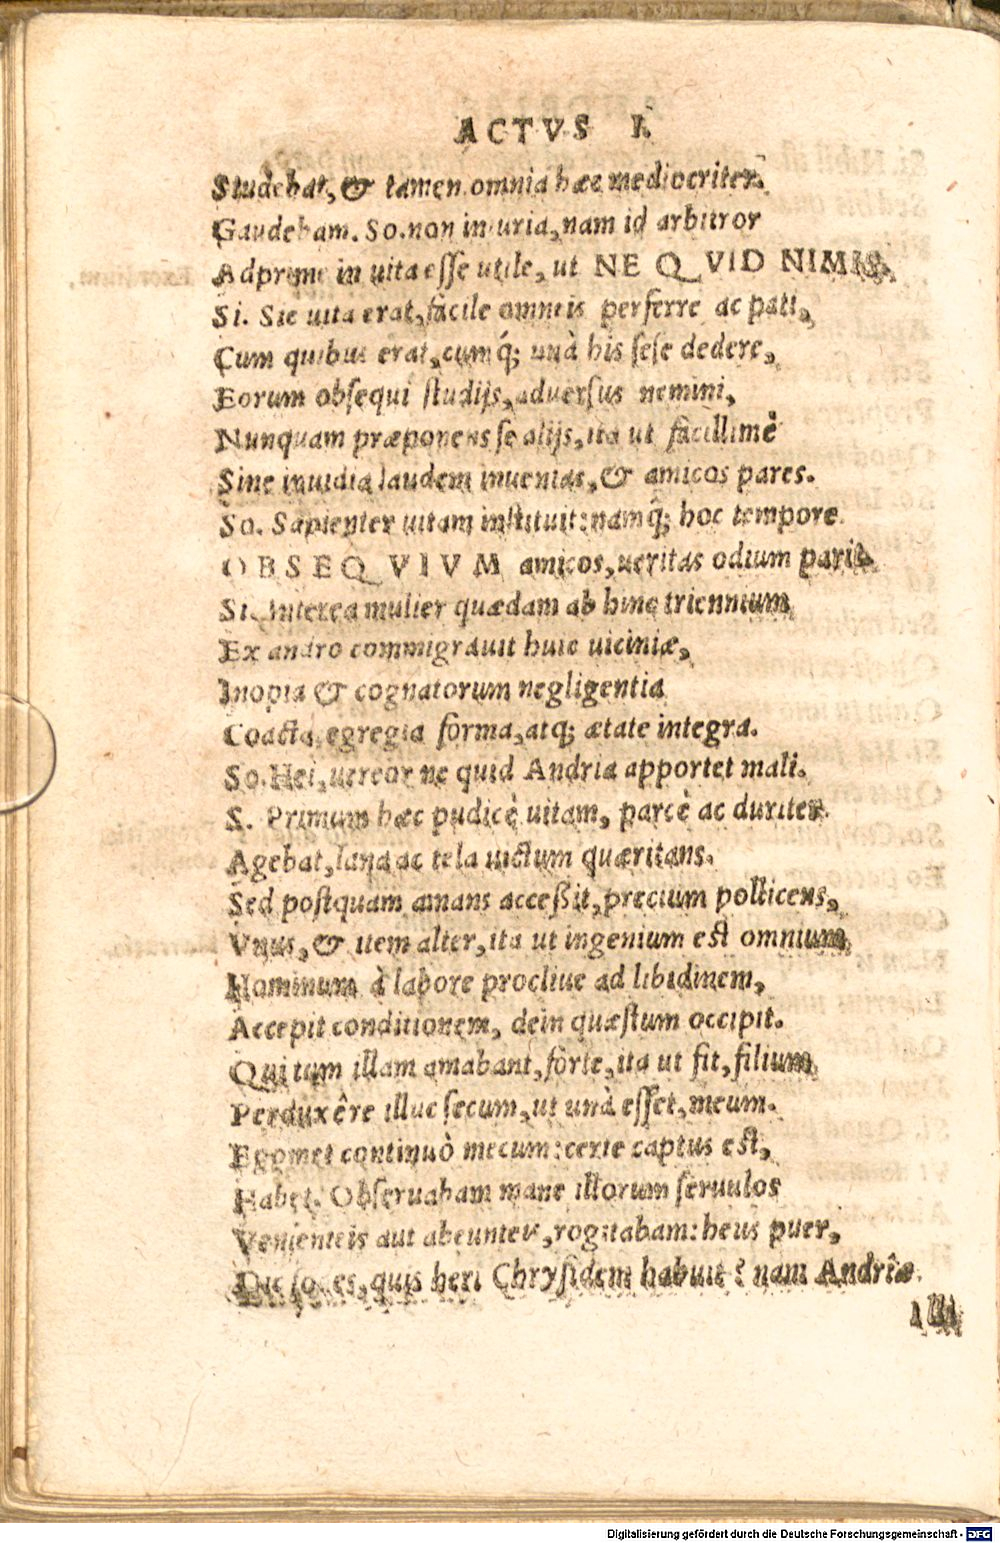 ACTVS I.
Studebat, & tamen omnia hæc mediocriter.
Gaudebam. So. non iniuria, nam id arbitror
Adprime in uita esse utile, ut NE QVID NIMIS.
Si. Sic uita erat, facile omneis perferre ac pati,
Cum quibus erat, cumq́; unà his sese dedere,
Eorum obsequi studijs, aduersus nemini,
Nunquam præponens se alijs, ita ut facillimè
Sine inuidia laudem inuenias, & amicos pares.
So. Sapienter uitam instituit: namq́; hoc tempore
OBSEQVIVM amicos, ueritas odium parit.
Si. Interea mulier quædam ab hinc triennium
Ex andro commigrauit huic uiciniæ,
Inopia & cognatorum negligentia
Coacta, egregia forma, atq; ætate integra.
So. Hei, uereor ne quid Andria apportet mali.
S. Primum hæc pudicè uitam, parcè ac duriter
Agebat, lana ac tela uictum quæritans.
Sed postquam amans acceßit, precium pollicens,
Vnus, & item alter, ita ut ingenium est omnium
Hominum à labore procliue ad libidinem,
Accepit conditionem, dein quæstum occipit.
Qui tum illam amabant, forte, ita ut fit, filium
Perduxêre illuc secum, ut unà esset, meum.
Egomet continuò mecum: certe captus est,
Habet. Obseruabam mane illorum seruulos
Venienteis aut abeunteis, rogitabam: heus puer,
Dic sodes, quis heri Chrysidem habuit? nam Andriæ
illi
Digitalisierung gefördert durch die Deutsche Forschungsgemeinschaft - DFG